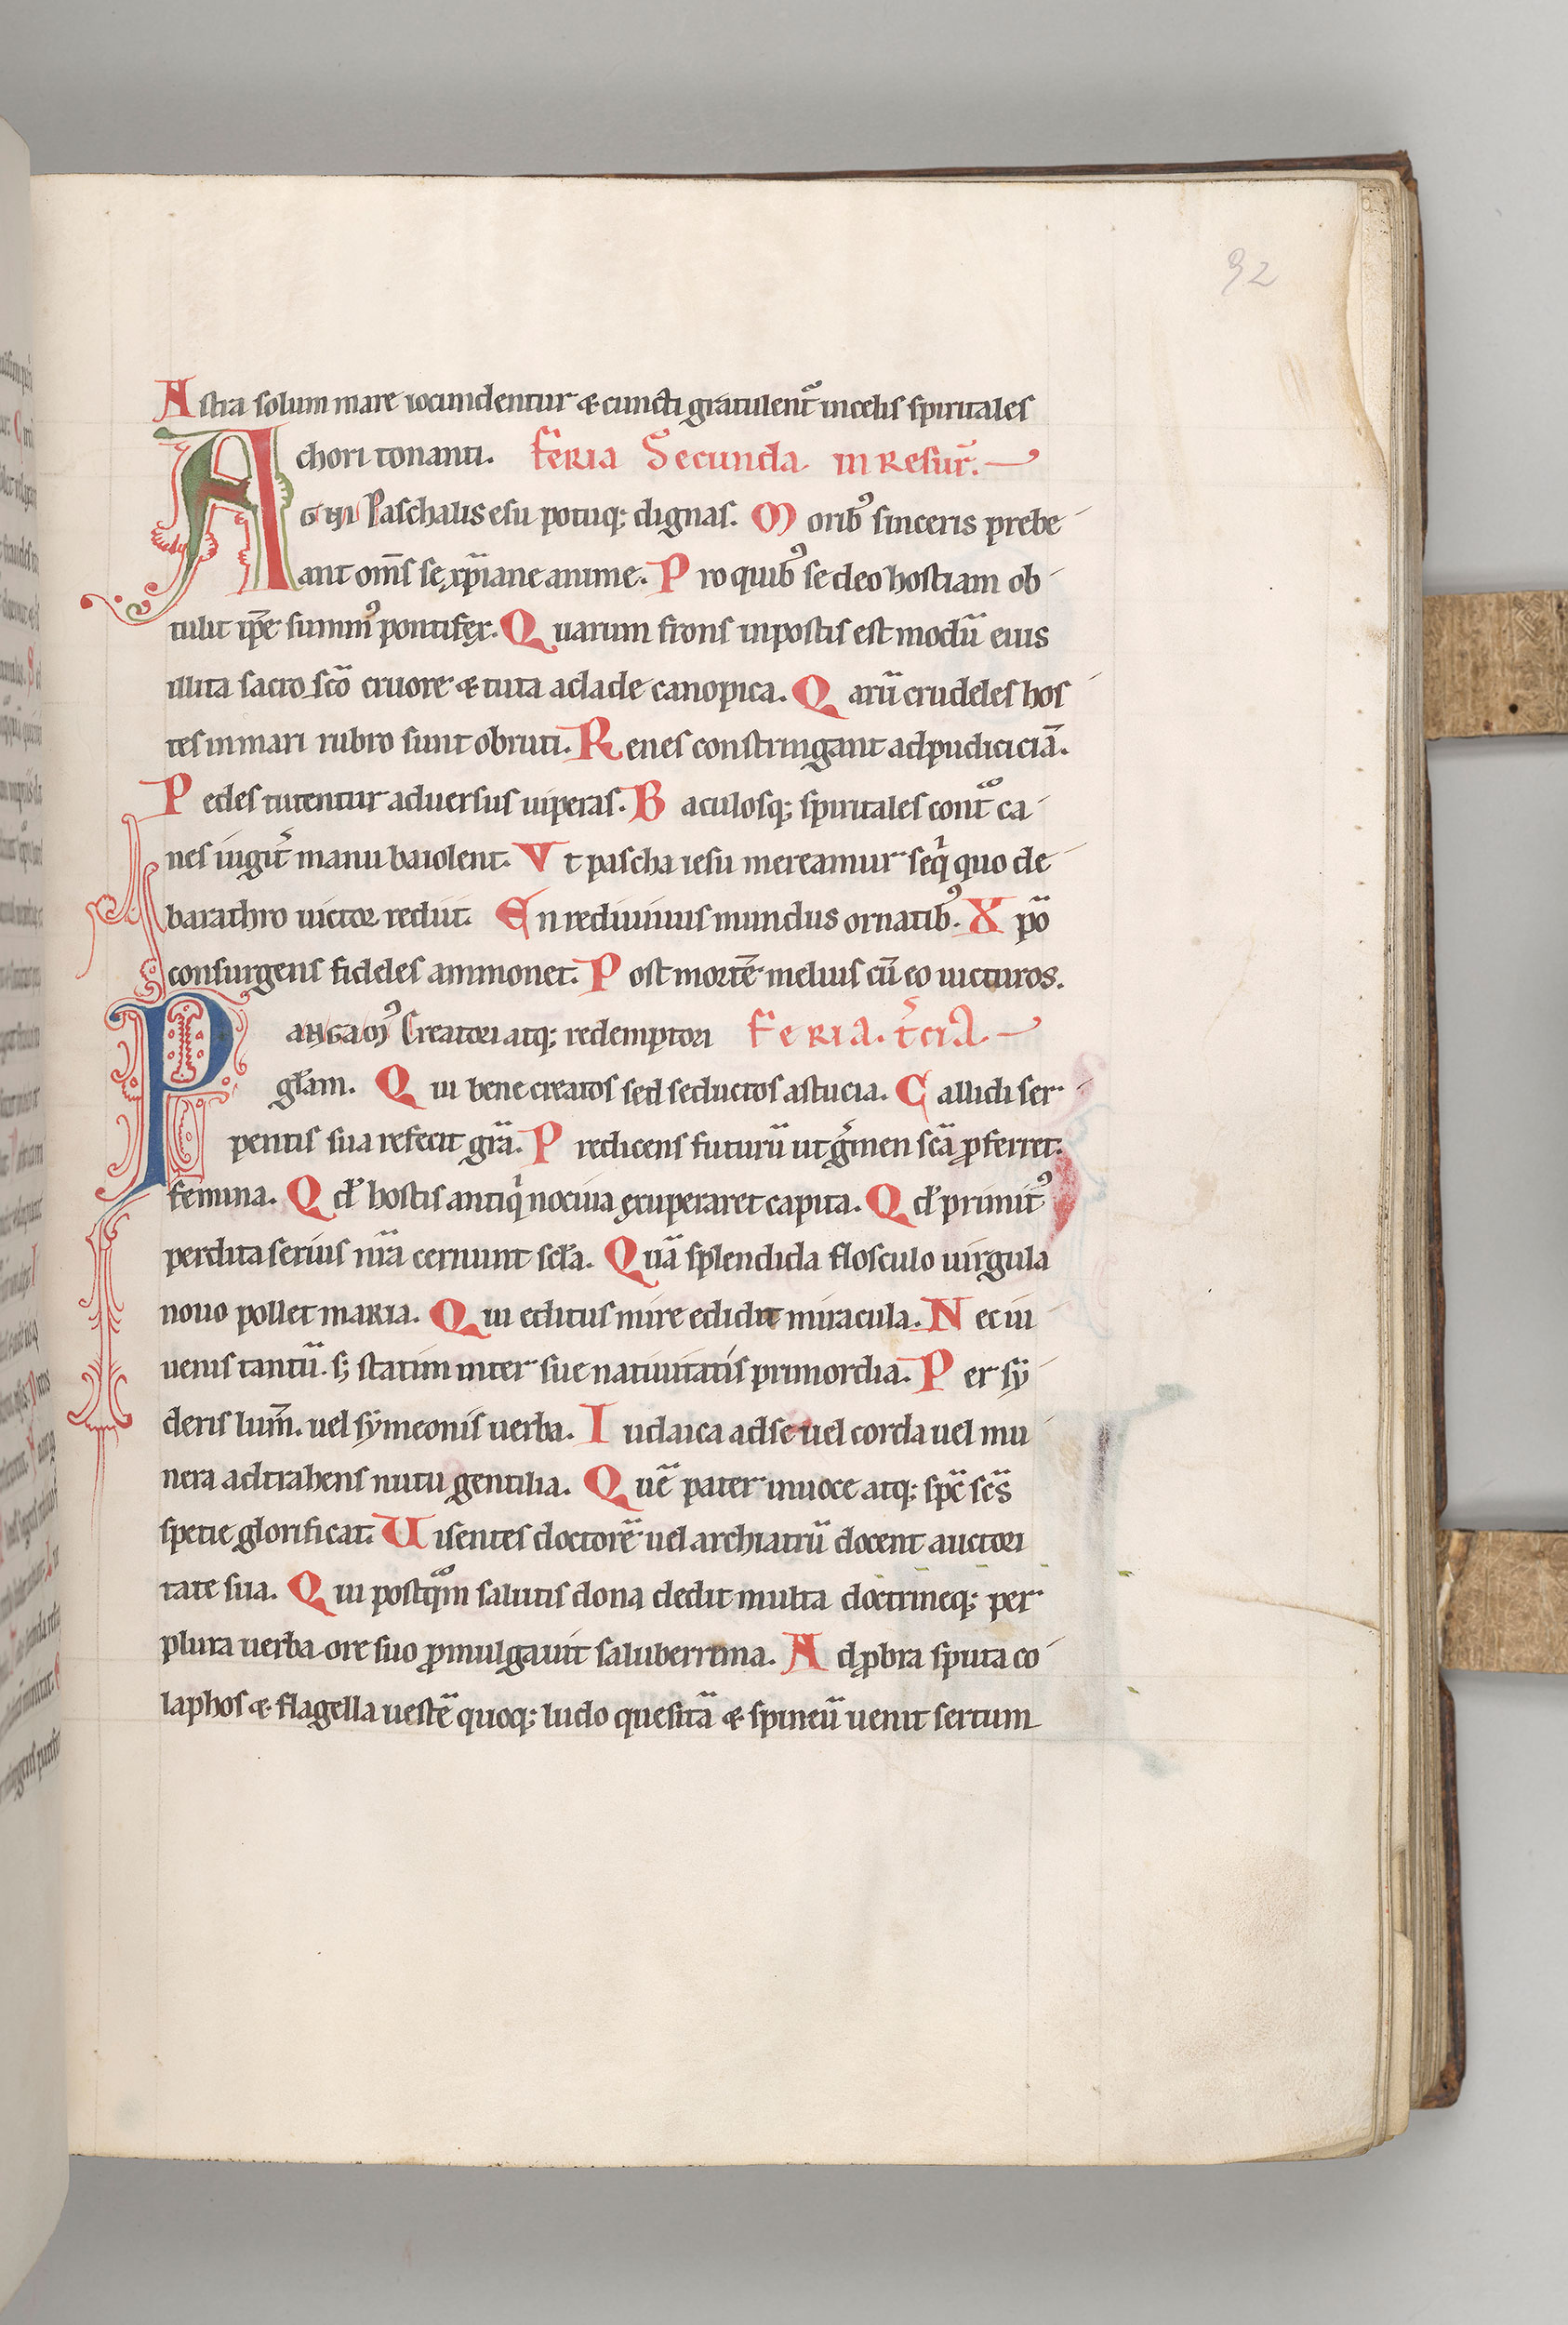 92
Astra solum mare iocundentur & cuncti gratulent᷑ in celis spiritales
chori tonanti. Feria Secunda in Resur̄.
AGNI Paschalis esu potuq; dignas. Moribꝰ sinceris prebe
ant om̄s se xp̄iane anime. Pro quibꝰ se deo hostiam ob
tulit ip̄e summꝰ pontifex. Quarum frons in postis est modū eius
illita sacro sc̄o cruore & tuta a clade canopica. Qarū crudeles hos
tes in mari rubro sunt obruti. Renes constringant ad pudiciciā.
Pedes tutentur aduersus uiperas. Baculosq; spiritales cont͛ ca
nes iugit᷑ manu baiolent. Vt pascha iesu mereamur seqͥ quo de
barathro uictor rediit. En rediuiuus mundus ornatibꝰ. Xp̄o
consurgens fideles ammonet. Post mortē melius cū eo uicturos.
PANGAMꝰ Creatori atq; redemptori Feria. t᷑cia
gl̄am. Qui bene creatos sed seductos astucia. Callidi ser
pentis sua refecit gr̄a. Predicens futurū ut g᷑men sc̄a ꝓferret
femina. Qd̄ hostis antiqͥ nociua exuperaret capita. Qd̄ primitꝰ
perdita serius nr̄a cernunt scl̄a. Quā splendida flosculo uirgula
nouo pollet maria. Qui editus mire edidit miracula. Nec iu
uenis tantū. s; statim inter sue natiuitatis primordia. Per sy
deris lum̄. uel symeonis uerba. Iudaica ad se uel corda uel mu
nera adtrahens nutu gentilia. Quē pater in uoce atq; sp̄c sc̄s
spetie glorificat. Uisentes doctorē uel archiatrū docent auctori
tate sua. Qui postqͣm salutis dona dedit multa doctrineq; per
plura uerba ore suo ꝓmulgauit saluberrima. Ad ꝓbra sputa co
laphos & flagella uestē quoq; ludo quesitā & spineū uenit sertum